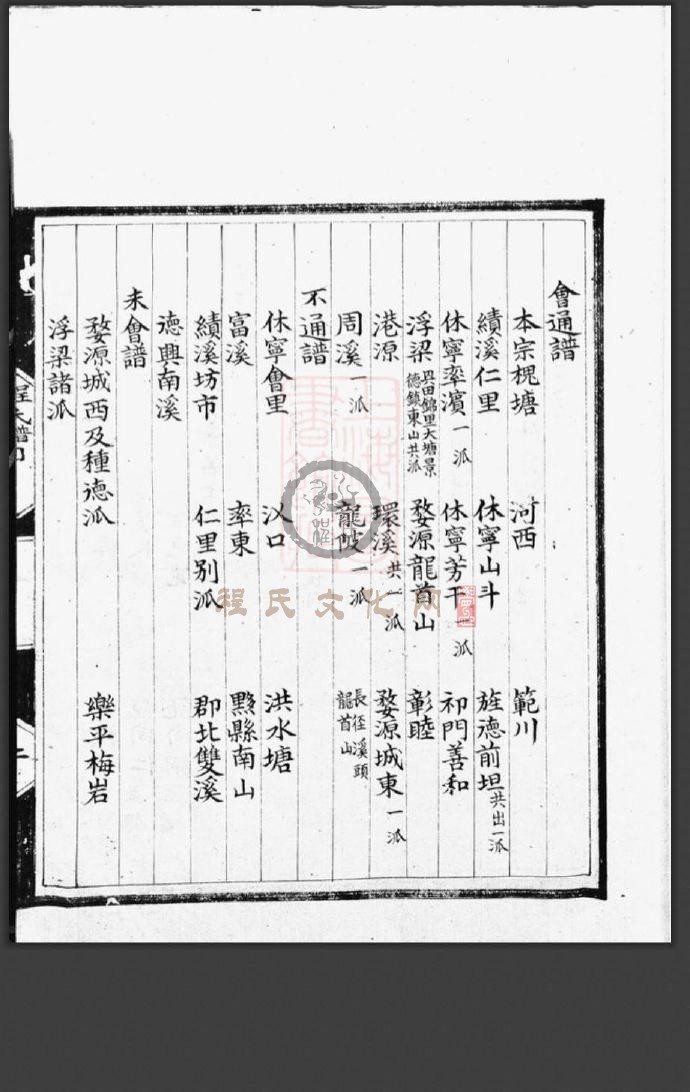 會通譜
本宗槐塘 河西 範川
績溪仁里 休寧山斗 旌德前坦共出一派
休寧率濱一派 休寧芳干一派 祁門善和
浮梁 大塘景德鎮東山共派 婺源龍首山 彰睦
港源 環溪共一派 婺源城東一派
周溪一派 龍陂一派 長徑溪頭龍首山
不通譜
休寧會里 汊口 洪水塘
富溪 率東 黟縣南山
績溪坊市 仁里別派 郡北雙溪
德興南溪
未會譜
婺源城西及種德派 樂平梅岩
浮梁諸派
程氏文化网